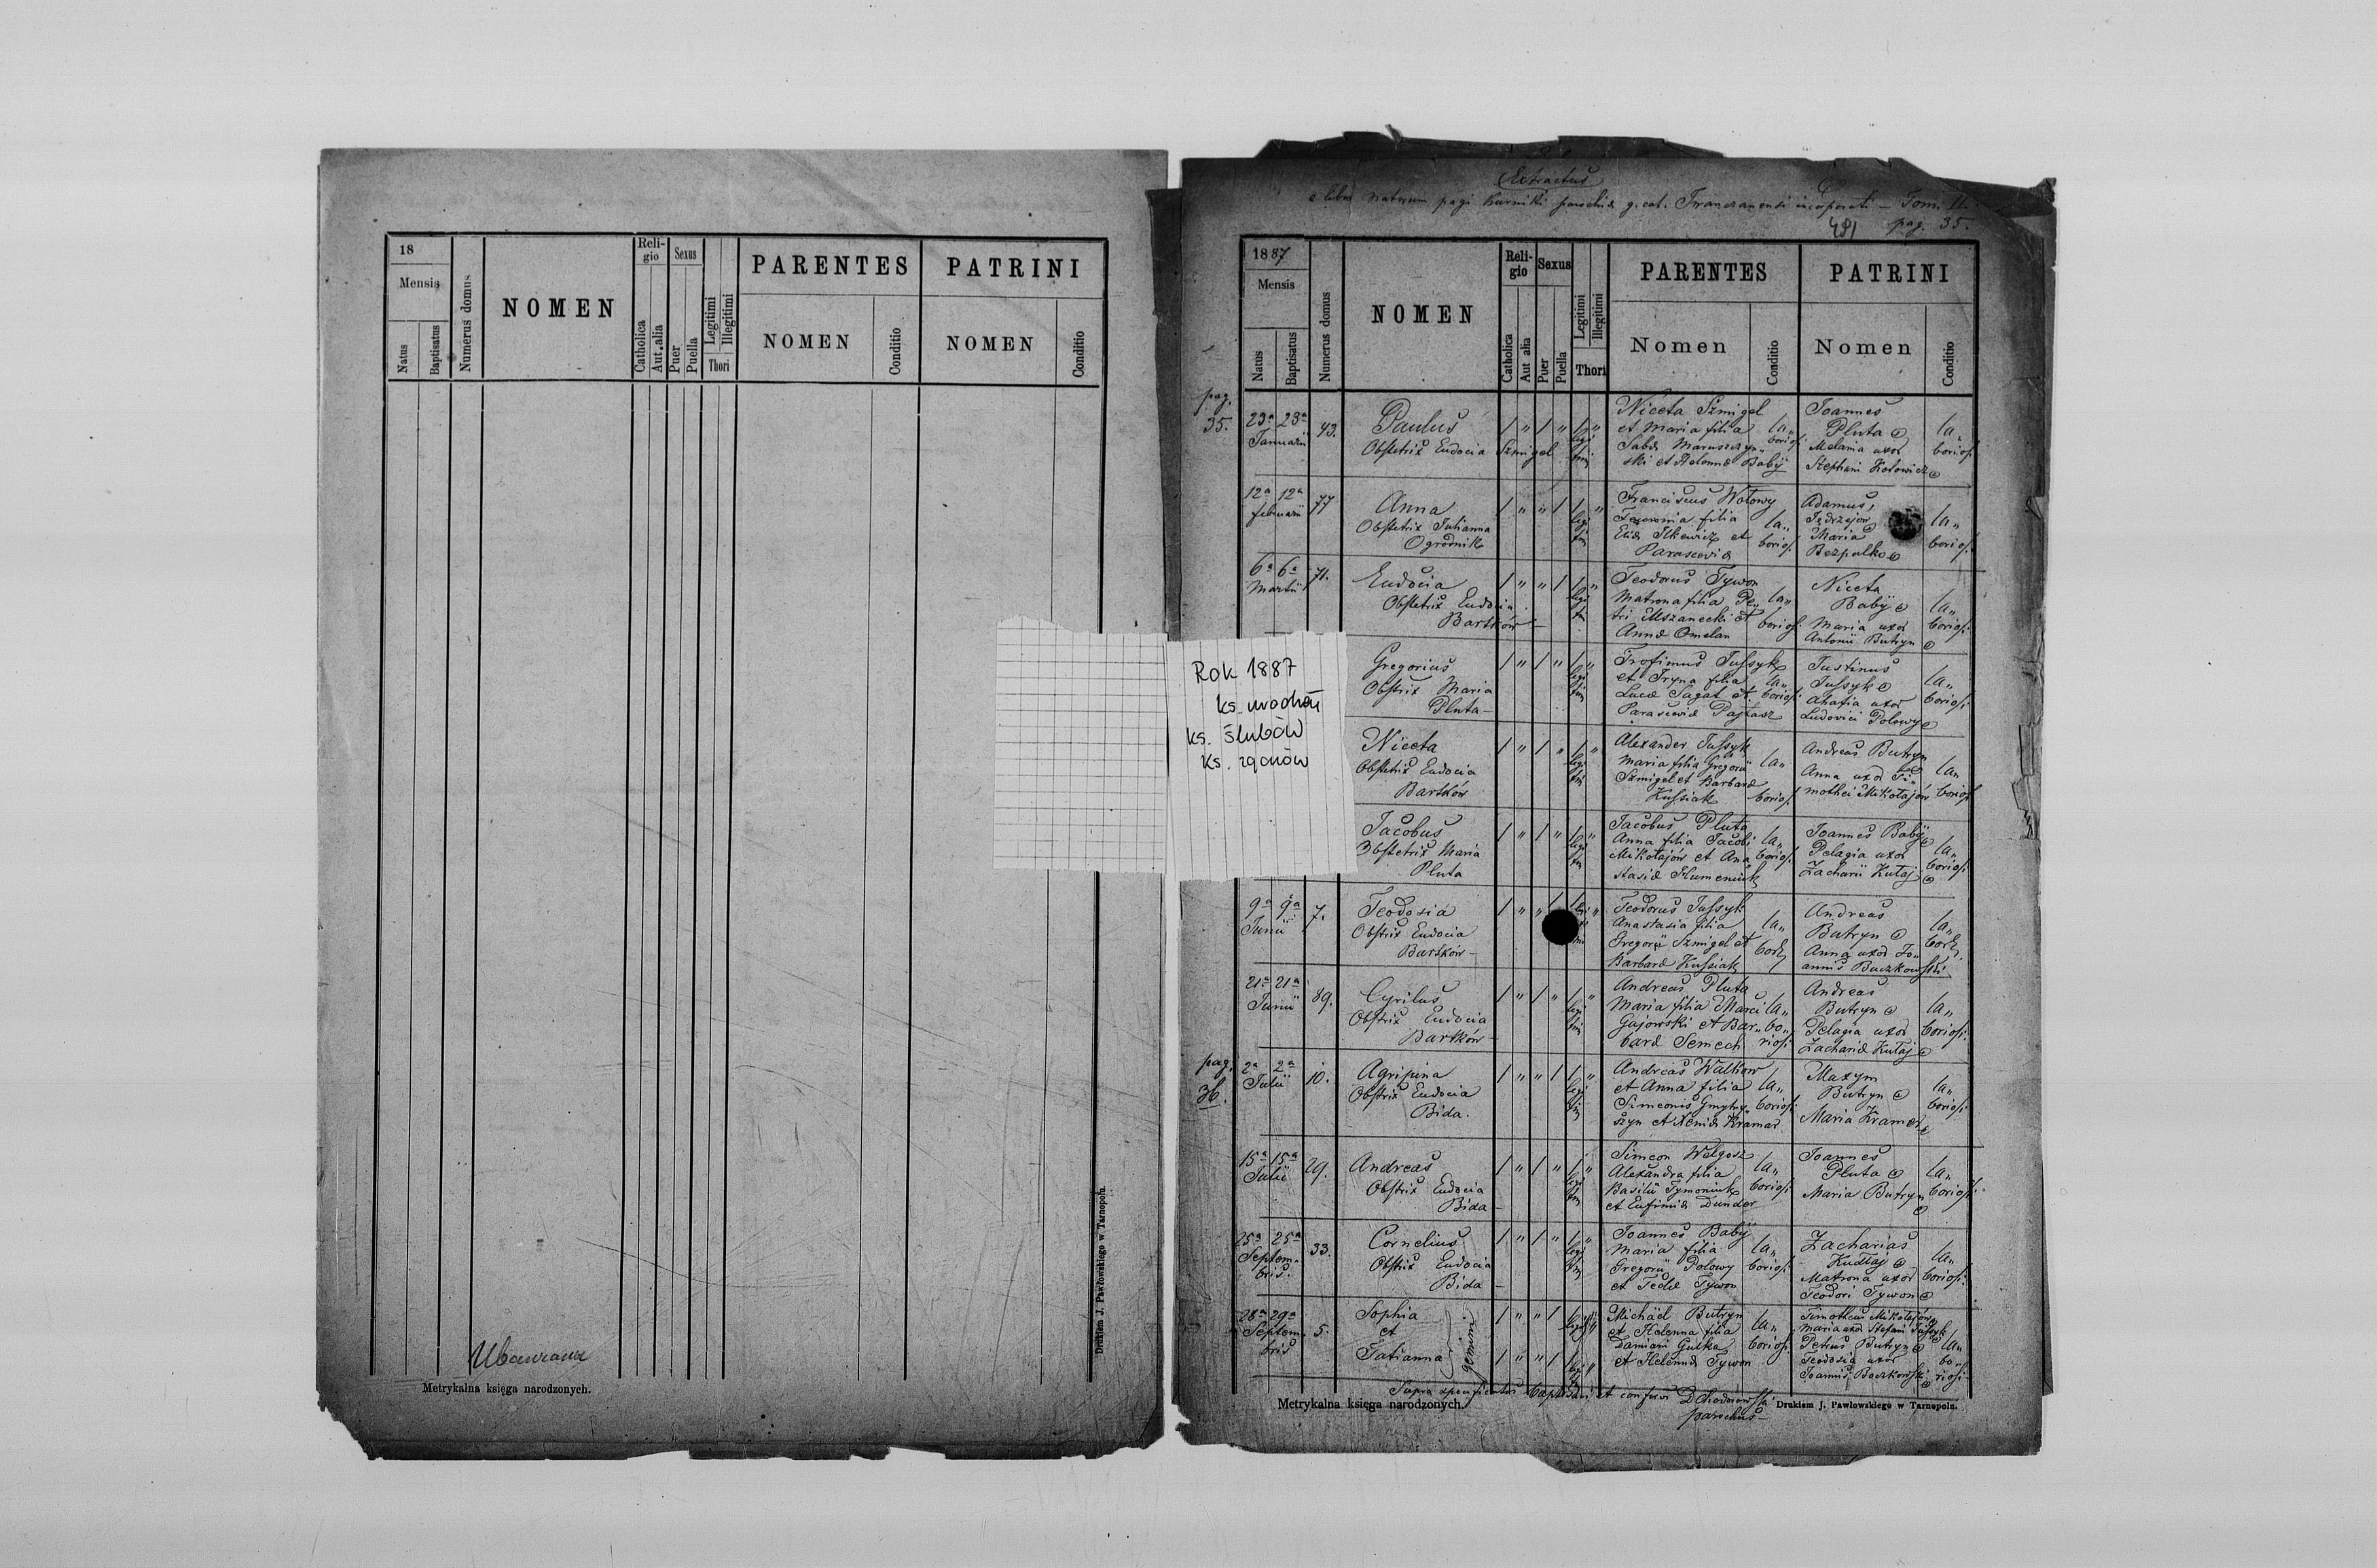 18
Mensis
Natus
Baptisatus
Numerus domus
NOMEN
Religio
Catholica
Aut. alia
Sexus
Puer
Puella
Legitimi
Illegitimi
Thori
PARENTES
NOMEN
Conditio
PATRINI
NOMEN
Conditio
Metrykalna księga narodzonych.
Drukiem J. Pawłowskiego w Tarnopolu.
Rok 1887
ks. urodzeń
ks. ślubów
ks. zgonów
Extractus
e libro natorum pagi Kurniki parochiæ g. cat. Iwanczanensi incorporati – Tom. II.
pag. 35.
1887
Mensis
Natus
Baptisatus
Numerus domus
NOMEN
Religio
Catholica
Aut alia
Sexus
Puer
Puella
Legitimi
Illegitimi
Thori
PARENTES
Nomen
Conditio
PATRINI
Nomen
Conditio
pag.
35.
23a 23a
Januarii
43.
Paulus
Obstetrix Eudocia Szmigel
Niceta Szmigel
et Maria filia
Sabæ Maruszczyn„
ski et Helennæ Babÿ
la„
boriosi
Joannes
Pluta
Melania uxor
Stephani Kotowicz
la„
boriosi
12a 12a
februarii
77
Anna
Obstetrix Julianna
Ogrodnik
Franciscus Wołowy
filia
Eliæ Ilkewicz et
Parasceviæ
la„
boriosi
Adamus
Jędrzejow
Maria
Bezpalko
la„
boriosi
6a 6a
Martii
71.
Eudocia
Obstetrix Eudocia
Bartków
Teodorus Tywon
Matrona filia Pe„
tri Uszanecki et
Annæ Omelan
la„
boriosi
Niceta
Babÿ
Maria uxor
Antonii Butryn
la„
boriosi
Gregorius
Obstrix Maria
Pluta
Trofimus Jussyk
et Iryna filia
Lucæ Sagat et
Parasceviæ Pajtasz
la„
boriosi
Justinus
Jussyk
Ahafia uxor
Ludovici Polowy
la„
boriosi
Niceta
Obstetrix Eudocia
Bartków
Alexander Jussyk
Maria filia Gregorii
Szmigel et Barbaræ
Kussiak
la„
boriosi
Andreas Butryn
Anna uxor Ti„
mothei Mikołajów
la„
boriosi
Jacobus
Obstetrix Maria
Pluta
Jacobus Pluta
Anna filia Jacobi
Mikołajów et Ana„
stasiæ Humeniuk
la„
boriosi
Joannes Babÿ
Pelagia uxor
Zacharii Kutaj
la„
boriosi
9a 9a
Junii
7.
Teodosia
Obstrix Eudocia
Bartków
Teodorus Jussyk
Anastasia filia
Gregorii Szmigel et
Barbaræ Kussiak
la„
Andreas
Butryn
Anna uxor Jo„
annis Buczkowski
la„
21a 21a
Junii
89.
Cyrilus
Obstrix Eudocia
Bartków
Andreas Pluta
Maria filia Marci
Gajowski et Bar„
baræ Semech
la„
bo„
riosi
Andreas
Butryn
Pelagia uxor
Zachariæ Kutaj
la„
boriosi
pag.
36.
2a 2a
Julii
10.
Agripina
Obstrix Eudocia
Bida.
Andreas Walkow
et Anna filia
Simeonis Gmytry„
szyn et Xeniæ Kramar
la„
boriosi
Maxym
Butryn
Maria Kramar
la„
boriosi
15a 15a
Julii
29.
Andreas
Obstrix Eudocia
Bida
Simeon Welgosz
Alexandra filia
Basilii Tymoniuk
et Eufimiæ Dunder
la„
boriosi
Joannes
Pluta
Maria Butryn
la„
boriosi
25a 25a
Septem„
bris.
33.
Cornelius
Obstrix Eudocia
Bida
Joannes Babÿ
Maria filia
Gregorii Polowy
et Teclæ Tywon
la„
boriosi
Zacharias
Kudłaj
Matrona uxor
Teodori Tywon
la„
boriosi
28a 29a
Septem„
bris
5.
Sophia
et
Tatianna
gemini
Michael Butryn
et Helenna filia
Damiani Gulka
et Helennæ Tywon
la„
boriosi
Timotheus Mikołajów
Maria uxor Stefani Jussyk
Petrus Butryn
Teodosia uxor
Joannis Baczkowski
la„
bo„
riosi
baptisavi et confirmavi
parochus
Metrykalna księga narodzonych.
Drukiem J. Pawłowskiego w Tarnopolu.